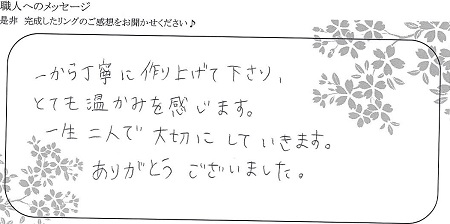 職人へのメッセージ
是非 完成したリングのご感想をお聞かせください♪
一から丁寧に作り上げて下さり、
とても温かみを感じます。
一生二人で大切にしていきます。
ありがとうございました。